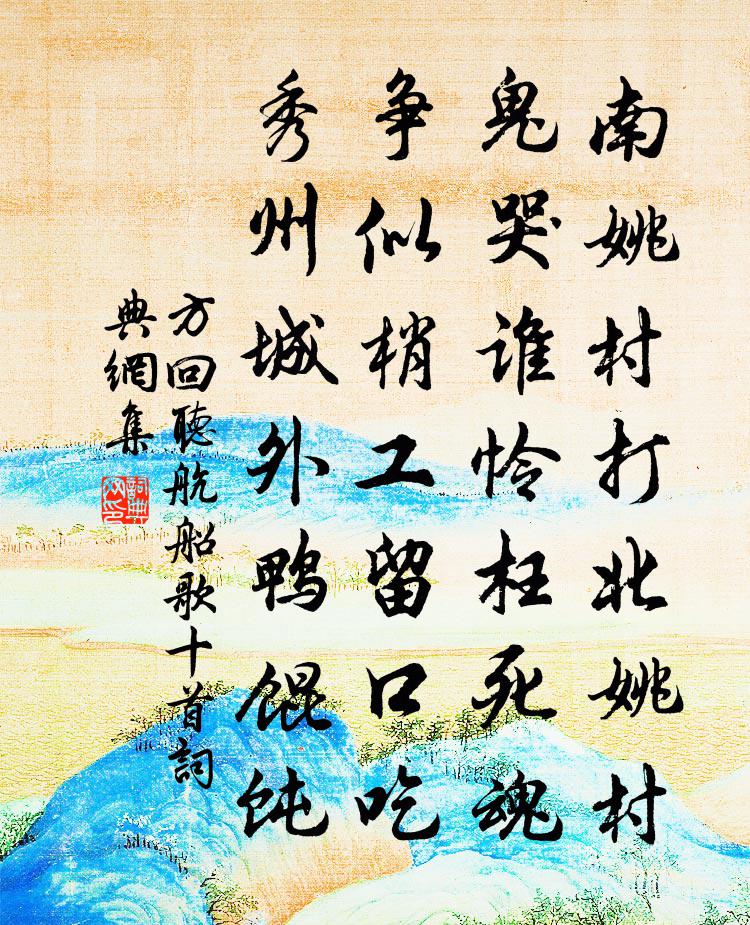 南姚村打北姚村
鬼哭谁怜枉死魂
争似梢工留口吃
秀州城外鸭馄饨
方回聽航船歌十首詞
典網集